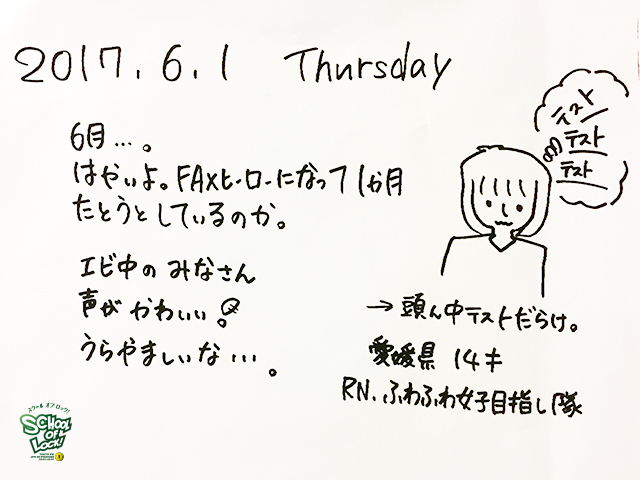 2017.6.1 Thursday
6月…。
はやいよ。FAXヒーローになって1か月
たとうとしているのか。
エビ中のみなさん
声がかわいい!
うらやましいな…。
テスト
テスト
テスト
→頭ん中テストだらけ。
愛媛県 14才
RN.ふわふわ女子目指し隊
スクール オブ ロック!
SCHOOL
OF
LOCK!